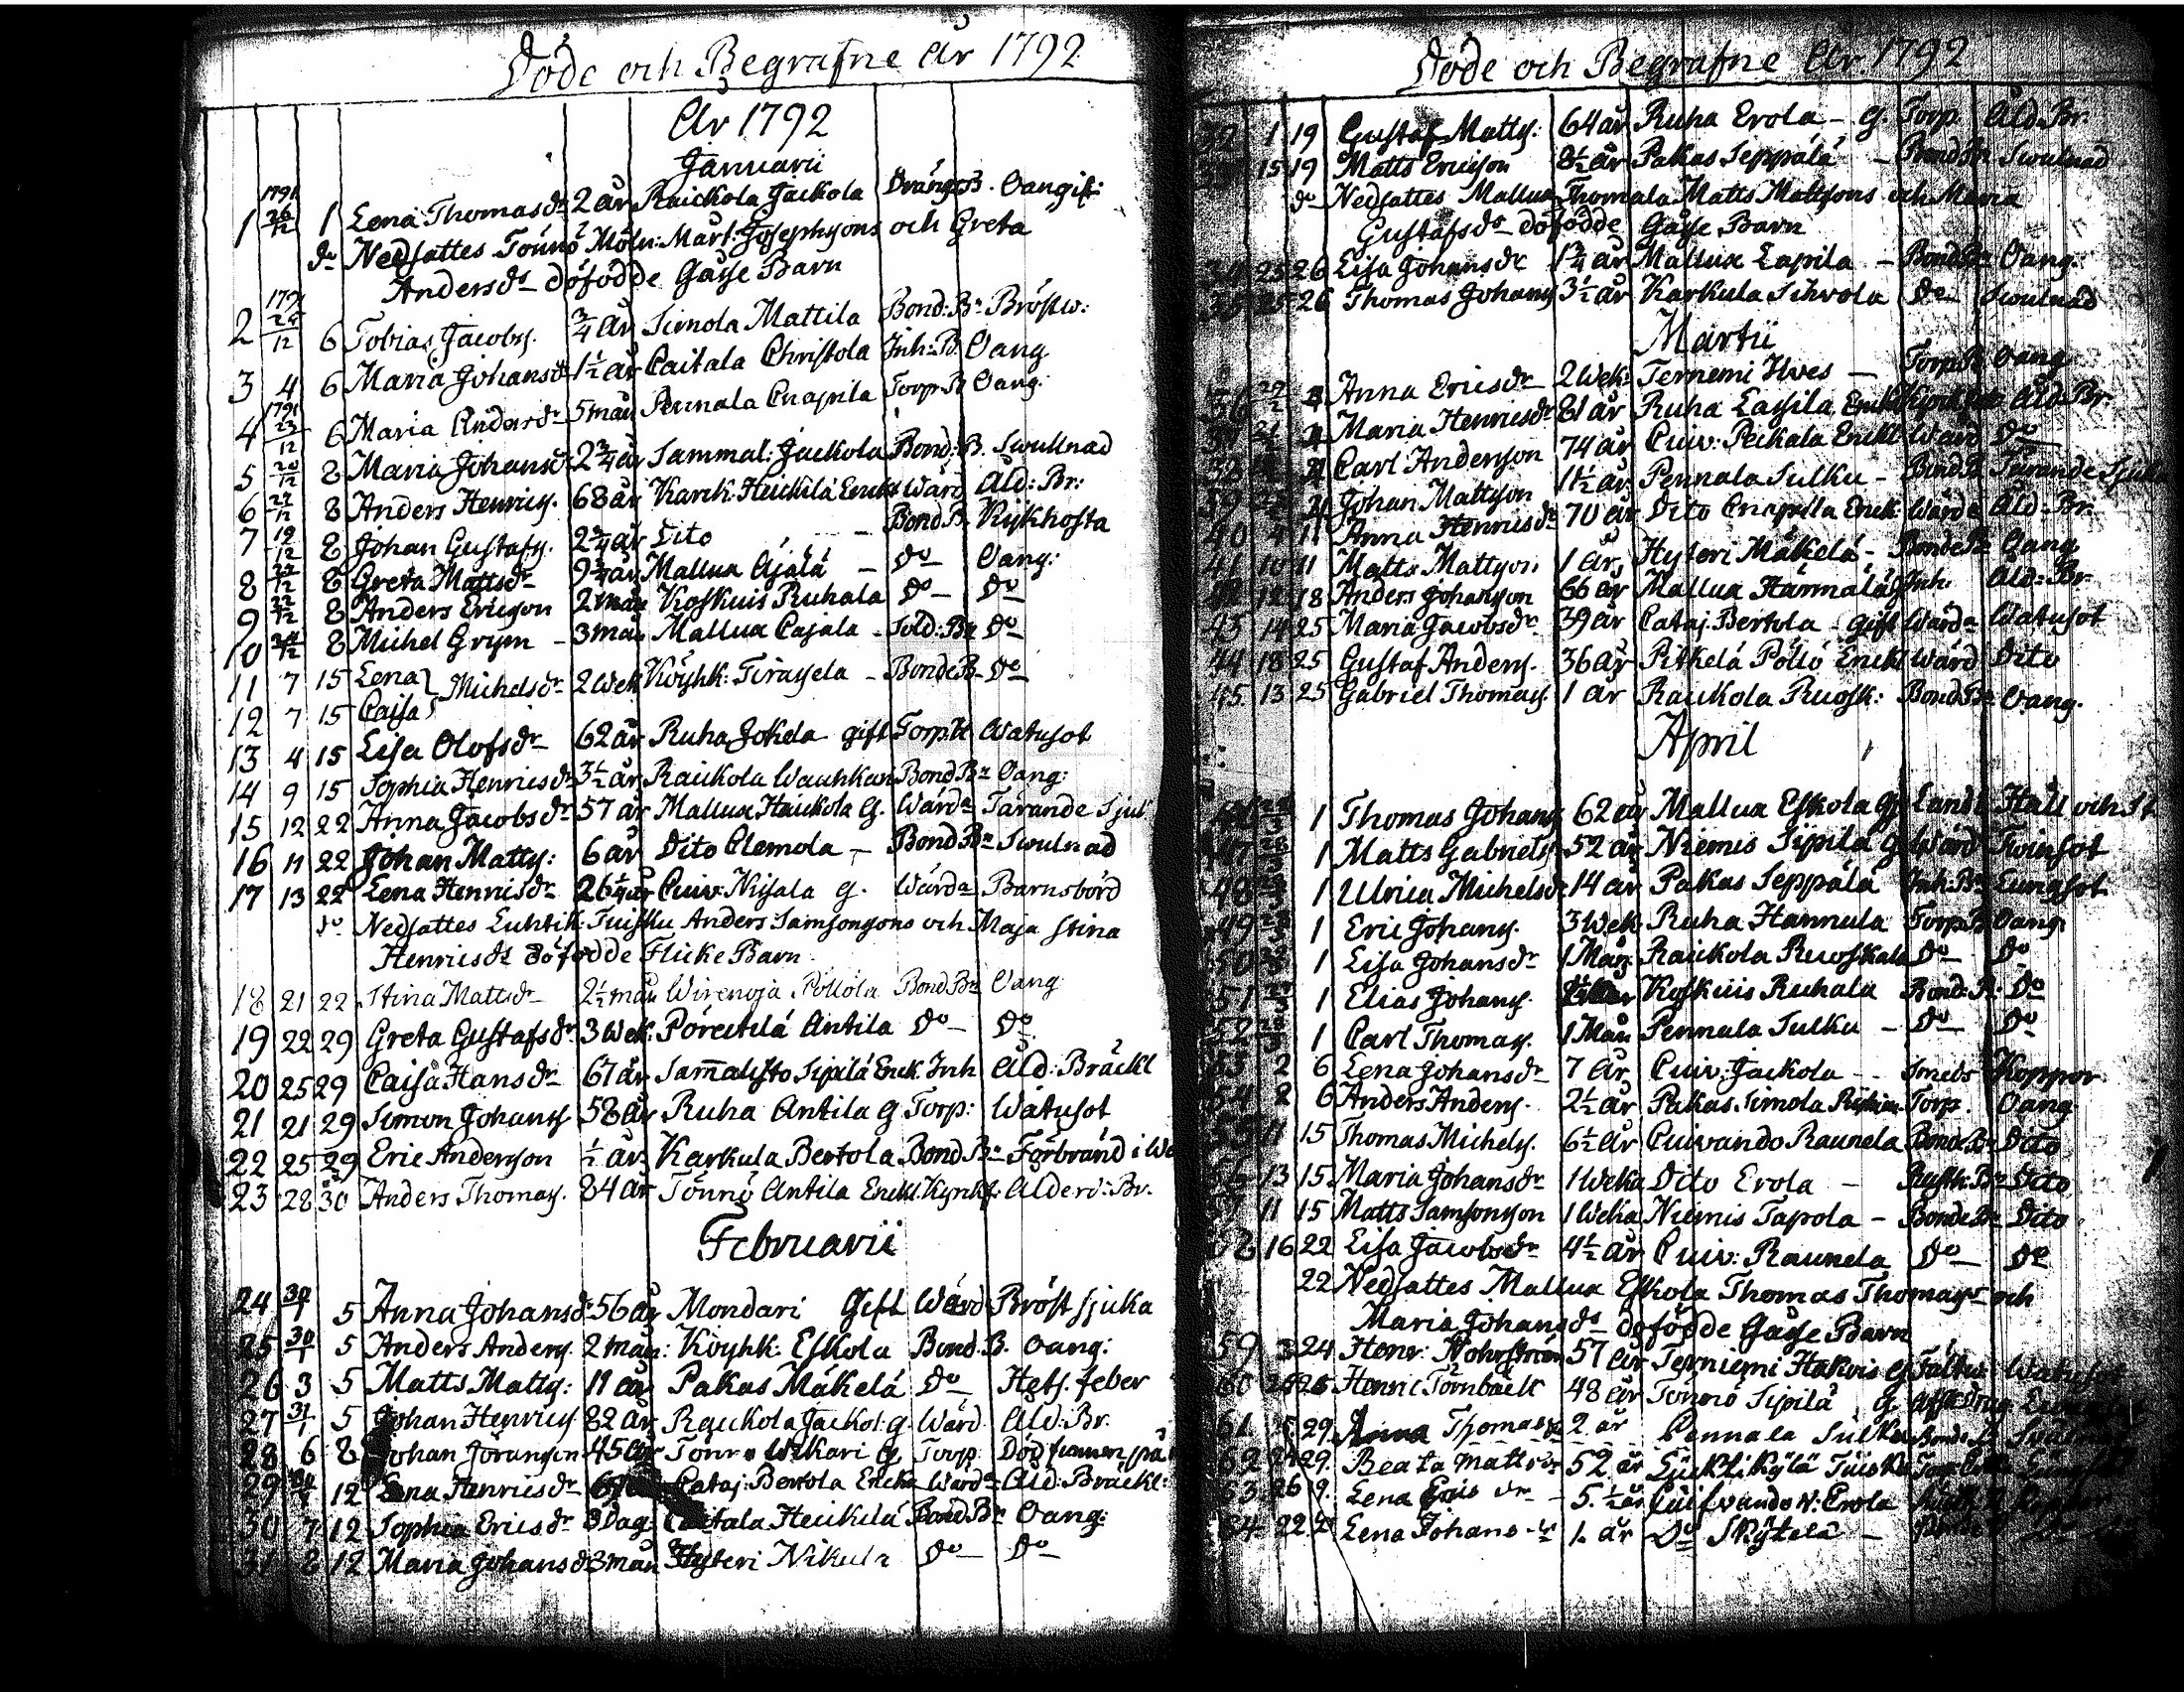 Döde och Begrafne År 1792
År 1792
Januarii
1 1791 26/12 1 Lena Thomasdr 2 år Raickola Jackola Drängs B. Oangif:
do Nedsattes Tönnö Möln: Mårt: Josephssons och Greta
Andersdr döfödde Gåsse Barn
2 1791 25/12 6 Tobias Jacobs. 3/4 År Simola Mattila Bond: Bn Bröstw:
3 4 6 Maria Johansdr 1½ år Caitala Christola Inh: B. Oang
4 1791 23/12 6 Maria Andersdr 5 mån Pennala Anapila Torp: B Oang:
5 20/12 8 Maria Johansdr 2¾ år Sammal: Jackola Bond: B. Swullnad
6 27/12 8 Anders Henrics. 68 år Karck: Heickilä Enckl Wärd Åld: Br:
7 19/12 8 Johan Gustafs. 2¾ år Dito – Bond B. Kykhosta
8 22/12 8 Greta Mattsdr 9¾ år Mallua Ajala – do Oang:
9 22/12 8 Anders Ericsson 2 mån Koskuis Ruhala do – do
10 8 Michel Grym – 3 mån Mallua Cajala – Sold: Bn do
11 7 15 Lena } Michelsdr 2 Wek Köyhk: Tirasela – Bonde B – do
12 7 15 Caisa
13 4 15 Lisa Olofsdr 62 år Ruha Jokela gift Torp H Watusot
14 9 15 Sophia Henricsdr 3½ år Raickola Wauhkan Bond Bn Oang:
15 12 22 Anna Jacobsdr 57 år Mallua Haickola G. Wärda Tärande Sjuk
16 11 22 Johan Matts: 6 år Dito Clemola – Bond Bn Swulnad
17 13 22 Lena Henricsdr 26¼ år Cuiv: Nisala g. Wärda Barnsbörd
do Nedsattes Luhtik: Tuisku Anders Samsonsons och Maja Stina
Henricsdr döfödde Flicke Barn
18 21 22 Stina Mattsdr 2½ mån Wirenoja Pöllölä Bond Bn Oang
19 22 29 Greta Gustafsdr 3 Wek: Pöreitilä Antila do – do
20 25 29 Caisa Hansdr 67 år Samalisto Sipilä Enck. Inh Åld: Bräckl
21 21 29 Simon Johans 58 år Ruha Antila g Torp: Watusot
22 25 29 Eric Andersson ½ år Karkula Bertola Bond Bn Förbränd i
23 28 30 Anders Thomas. 84 år Tönnö Antila Enckl. Kyrkf: Ålderd: Br.
Februarii
24 30/1 5 Anna Johansdr 56 år Mondari Gift Wärd Bröstsjuka
25 30/1 5 Anders Anders 2 mån: Köyhk: Eskola Bond. B. Oang:
26 3 5 Matts Matts: 11 år Pakas Mäkelä do Hets. feber
27 31/1 5 Johan Henrics 82 år Raickola Jackol: g Wärd Åld: Br.
28 6 8 Johan Göransson 45 år Tönnö Wekari g Torp. Död funnen på
29 12 Henricsdr Cataj: Bertola Encka Wärda Åld: Bräckl:
30 7 12 Sophia Ericsdr 8 Dag. Heickilä Bond Bn Oang:
31 8 12 Maria Johansdr 3 mån Hyteri Nikula do – do
Döde och Begrafne År 1792
32 1 19 Gustaf Matts: 64 år Ruha Erola – g. Torp. Åld Br.
15 19 Matts Ericsson 8½ år Pakas Seppälä – Bond Bn Swulnad
do Nedsattes Mallua Thomala Matts Mattssons och Maria
Gustafsdr döfödde Gåsse Barn
34 25 26 Lisa Johansdr 1¾ år Mallua Lapila – Bond Bn Oang:
35 25 26 Thomas Johans 3½ år Karkula Sihvola do – Swulnad
Martii
36 4 Anna Ericsdr 2 Wek: Ternemi Ilves – Torp B Oang
4 Maria Henricsdr 81 år Ruha Lassila Åld: Br.
4 Carl Andersson 74 år Cuiv: Peckala Enckl Wärd do
39 4 Johan Mattsson 11½ år Pennala Sulku – Bond B Tärande Sjuk
40 4 11 Anna Henricsdr 70 år Dito Anapilla Enck: Wärda Åld: Br:
41 10 11 Matts Mattsson 1 år Hyteri Mäkelä – Bonde Bn Oang
12 18 Anders Johansson 66 år Mallua Härmälä Inh: Åld: Br.
43 14 25 Maria Jacobsdr 39 år Cataj: Bertola – gift Wärda Watusot
44 18 25 Gustaf Anders. 36 år Pitkelä Pöllö Enckl Wärd Dito
45 13 25 Gabriel Thomas. 1 år Raickola Ruosk: Bond Bn Oang.
April
1 Thomas Johans 62 år Mallua Eskola g Håll och St
1 Matts Gabriels 52 år Niemis Sipilä g Wärd Twinsot
48 1 Ulrica Michelsdr 14 år Pakas Seppälä Inh: Bn Lungsot
49 1 Eric Johans. 3 Wek Ruha Hannula Torp B Oang
50 1 Lisa Johansdr 1 Mån Raickola Ruoskala do – do
51 1 Elias Johans. Koskuis Ruhala Bond: B. do
52 1 Carl Thomas. 1 Mån Pennala Sulku – do – do
53 2 6 Lena Johansdr 7 År Cuiv: Jackola – Smeds Koppor
54 2 6 Anders Anders. 2½ år Pakas Simola Torp. Oang
55 11 15 Thomas Michels. 6½ år Cuivando Raunela Bonde Bn Dito
56 13 15 Maria Johansdr 1 Weka Dito Erola – Rusth: Bn Dito
57 11 15 Matts Samsonsson 1 Weka Niemis Tapola – Bonde Bn Dito
58 16 22 Lisa Jacobsdr 4½ år Cuiv: Raunela do – do
22 Nedsattes Mallua Eskola Thomas Thomass och
Maria Johansdr döfödde Gåsse Barn
59 24 Henr: 57 år Terniemi Hakois g Watusot
60 26 Henric Törnbäck 48 år Tönnö Sipilä g.
61 25 29 Anna Thomasdr 2 år Pennala Sulku
62 29 Beata Mattsdr 52 år Luhtikylä Tuisku
63 26 Lena Ericsdr – 5½ år Cuifvando Erola
64 22 Lena Johansdr 1. år do Skyttelä –